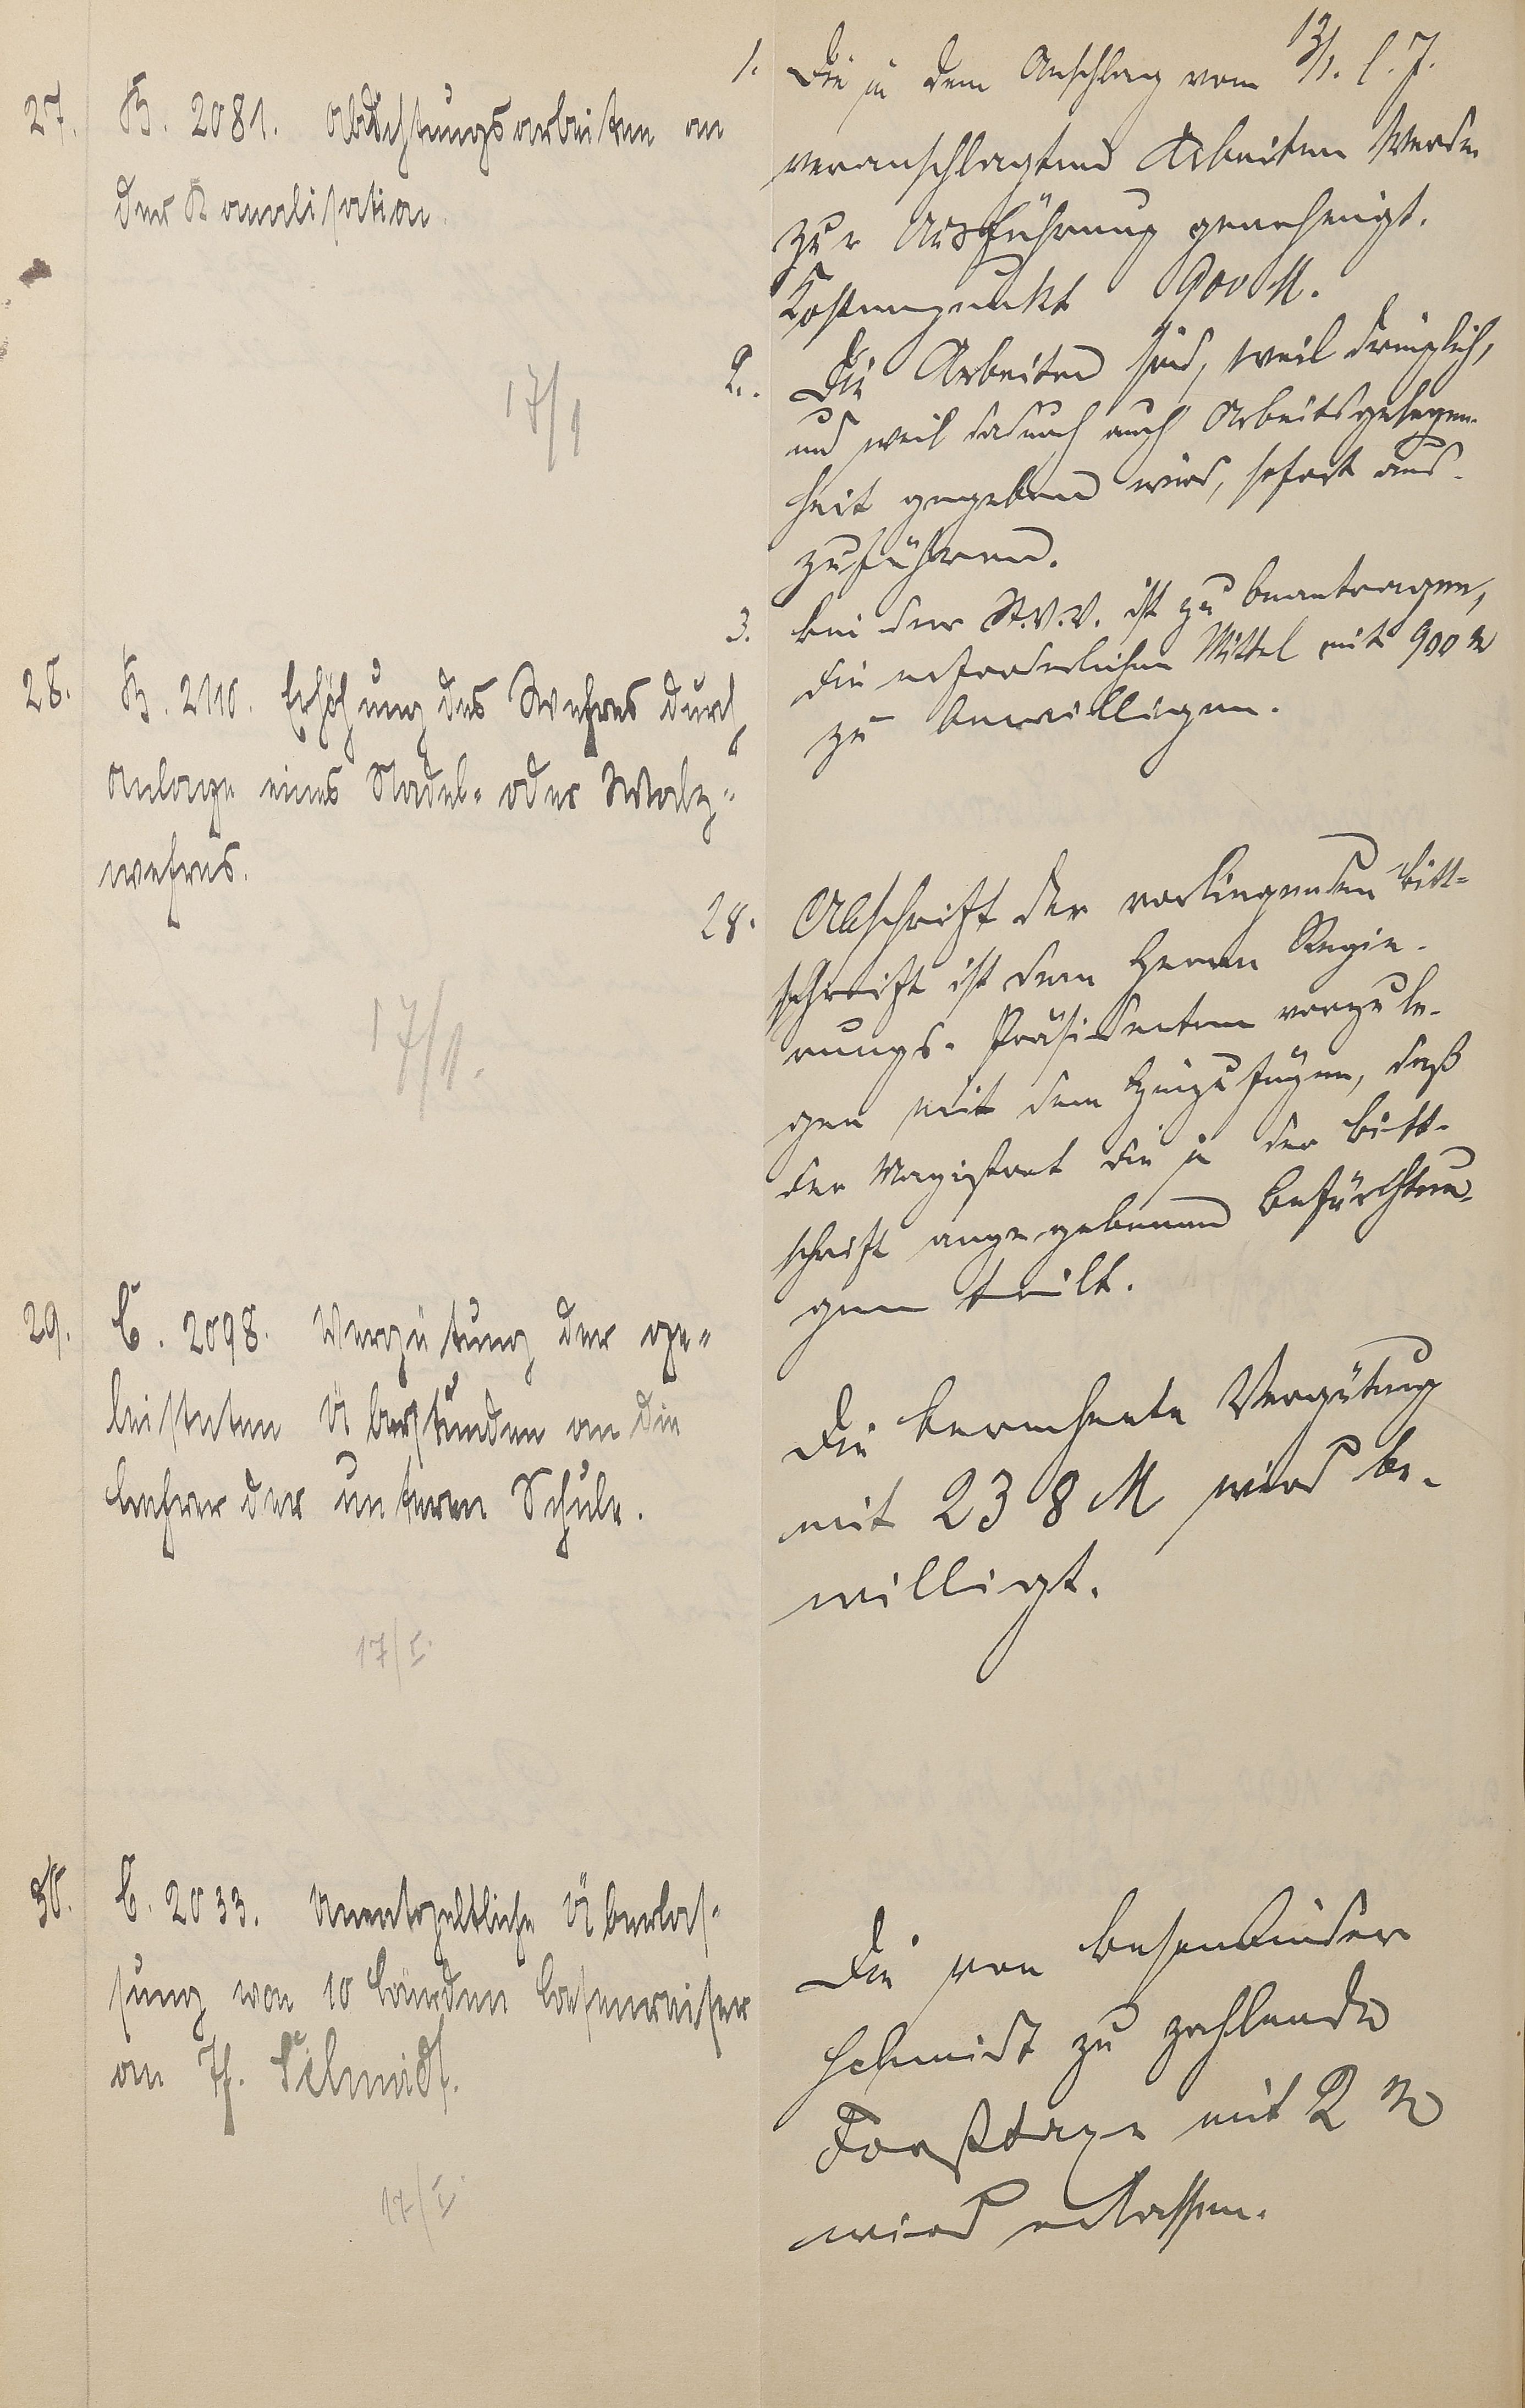 27. B. 2081. Abdichtungsarbeiten an
der Kanalisation.
17/1
1. Die in dem Anschlag vom 13/1. l. J.
veranschlagten Arbeiten werden
zur Ausführung genehmigt.
Kostenpunkt 900 M.
2. Die Arbeiten sind, weil dringlich,
und weil dadurch auch Arbeitsgelegen-
heit gegeben wird, sofort aus-
zuführen.
3. bei der St.V.V. ist zu beantragen,
die erforderlichen Mittel mit 900 M
zu bewilligen.
28. B. 2110. Erhöhung des Wehres durch
Anlage eines Nadel- oder Walz-
wehres.
17/1.
28. Abschrift der vorliegenden Bitt-
schrift ist dem Herrn Regie-
rungs-Präsidenten vorzule-
gen mit dem Hinzufügen, daß
der Magistrat die in der Bitt-
schrift angegebenen Befürchtun-
gen teilt.
29. C. 2098. Vergütung der ge-
leisteten Überstunden an die
Lehrer der unteren Schule.
17/I.
Die berechnete Vergütung
mit 238 M wird be-
willigt.
30. C. 2033. Unentgeltliche Überlas-
sung von 10 Bürden Besenreiser
an Schmidt.
17/I.
Die von Besenbinder
Schmidt zu zahlende
Forsttaxe mit 2 M
wird erlassen.